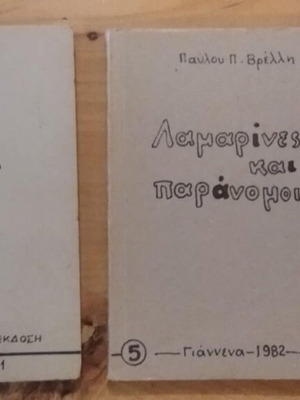 ΕΚΔΟΣΗ
1
Παύλου Π. Βρέλλη
Λαμαρίνες
και
παράνομοι
5 — Γιάννενα — 1982 —